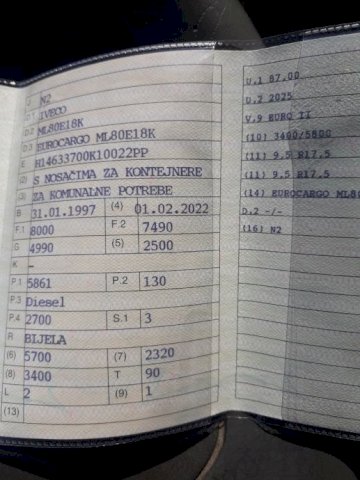 J N2
D.1 IVECO
D.2 ML80E18K
D.3 EUROCARGO ML80E18K
E H14633700K10022PP
(2) S NOSAČIMA ZA KONTEJNERE
(3) ZA KOMUNALNE POTREBE
B 31.01.1997 (4) 01.02.2022
F.1 8000 F.2 7490
G 4990 (5) 2500
K -
P.1 5861 P.2 130
P.3 Diesel
P.4 2700 S.1 3
R BIJELA
(6) 5700 (7) 2320
(8) 3400 T 90
L 2 (9) 1
(13)
U.1 87,00
U.2 2025
V.9 EURO II
(10) 3400/5800
(11) 9,5 R17,5
(11) 9,5 R17,5
(14) EUROCARGO ML80
D.2 -/-
(16) N2